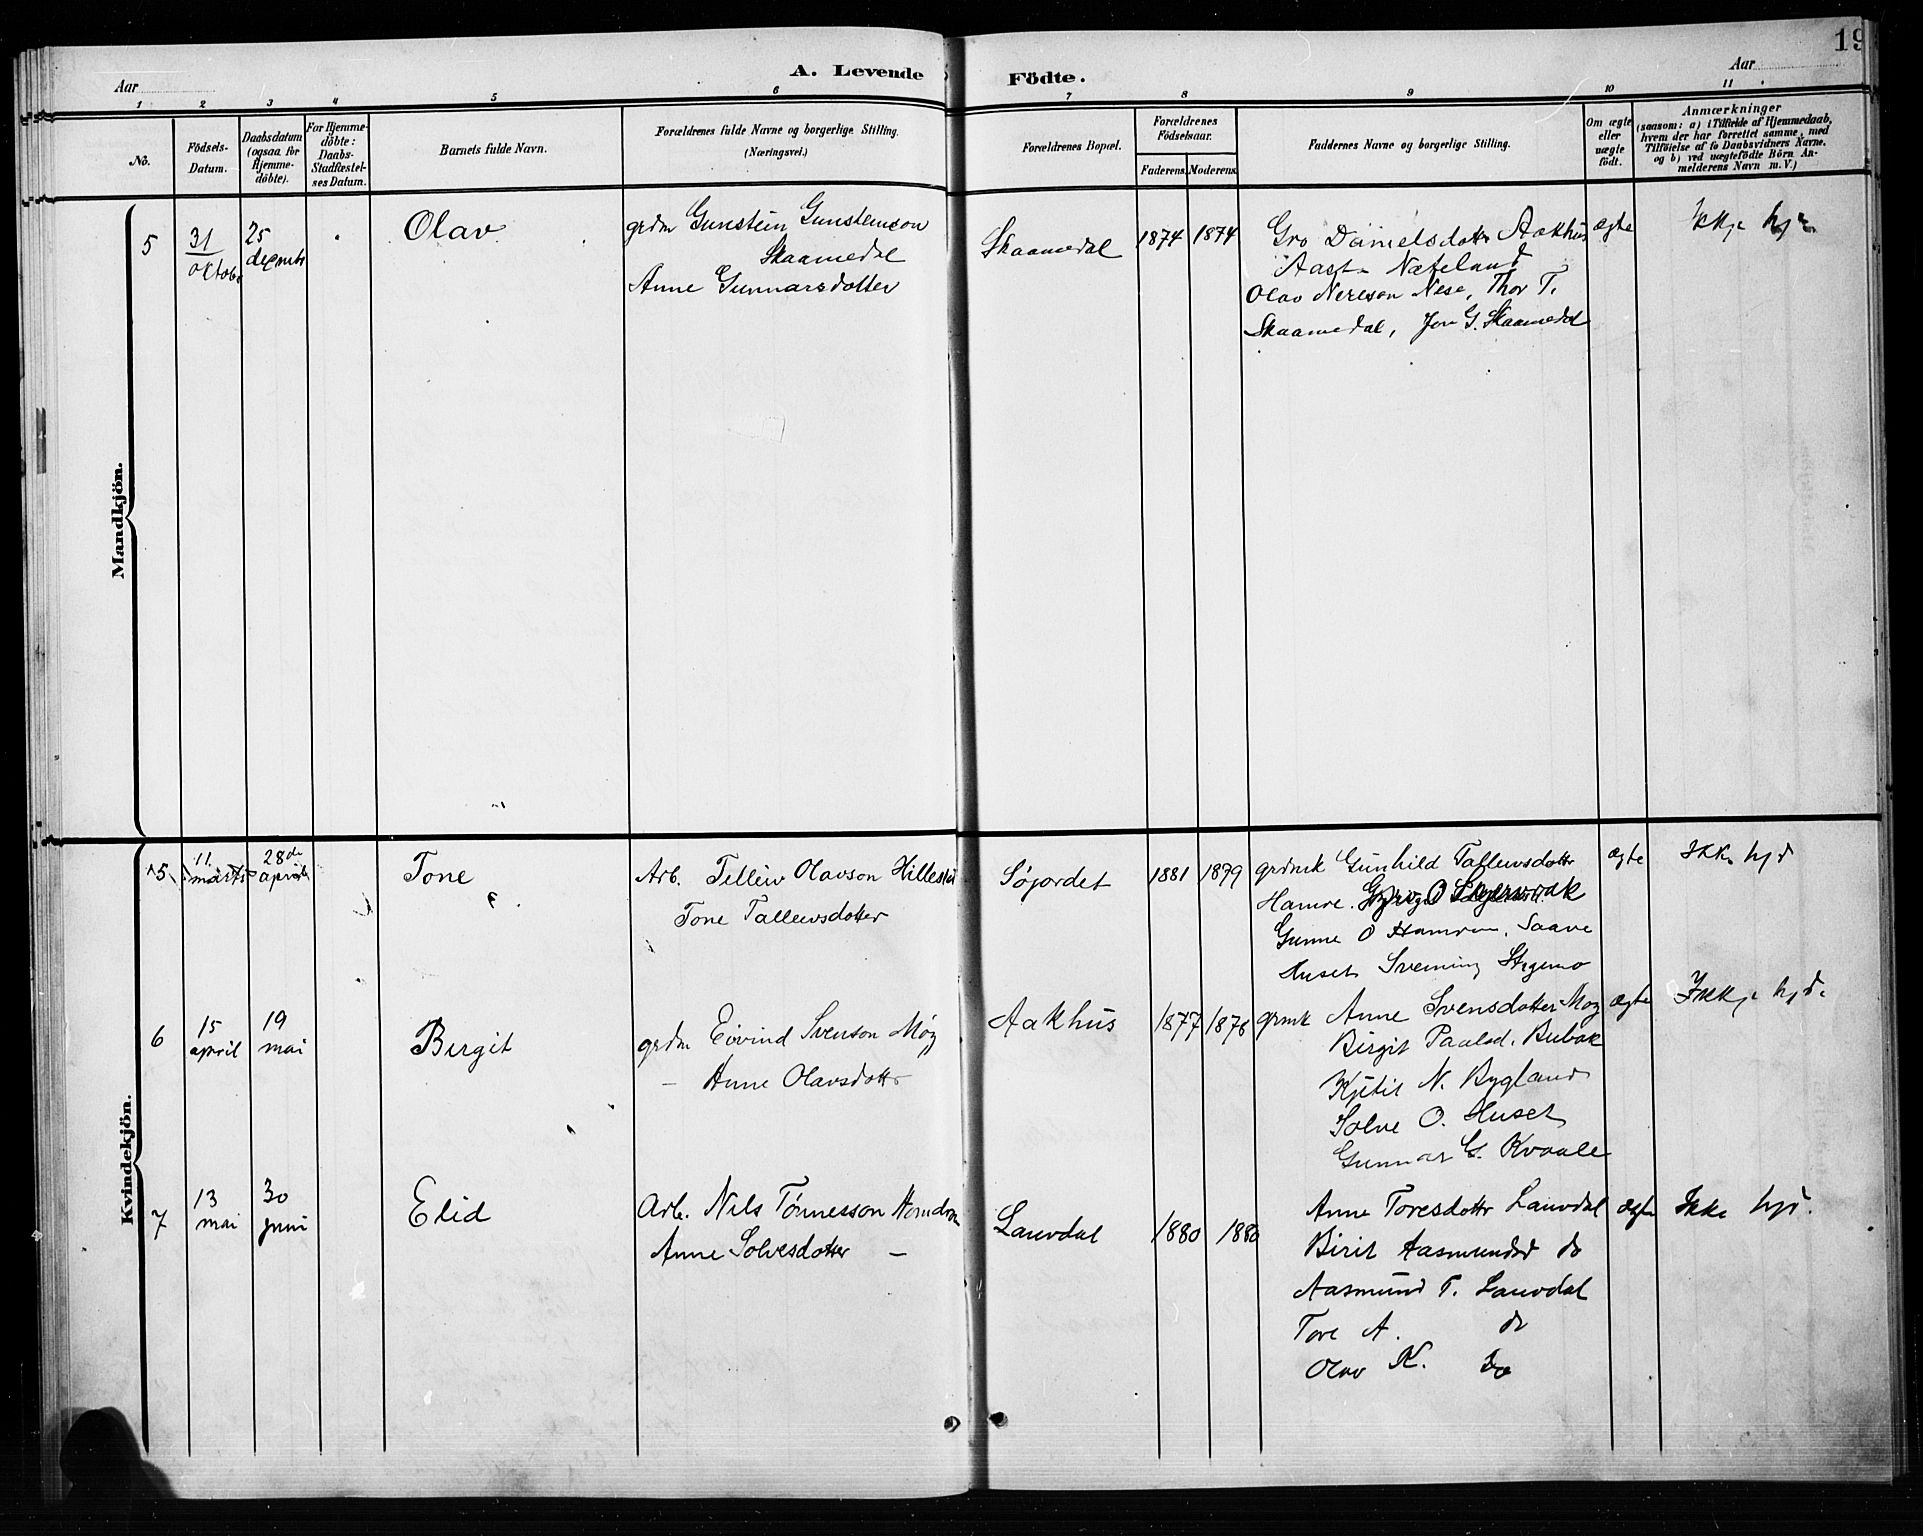 19
Aar
A. Levende Födte.
Aar
1 2 3 4 5 6 7 8 9 10 11
No.
Födsels-
Datum.
Daabsdatum
(ogsaa for
Hjemme-
döbte).
For Hjemme-
döbte:
Daabs-
Stadfæstel-
ses Datum.
Barnets fulde Navn.
Forældrenes fulde Navne og borgerlige Stilling.
(Næringsvei.)
Forældrenes Bopæl.
Forældrenes
Födselsaar.
Faderens. Moderens.
Faddernes Navne og borgerlige Stilling.
Om ægte
eller
uægte
födt.
Anmærkninger
(saasom: a) i Tilfælde af Hjemmedaab,
hvem der har forrettet samme, med
Tilföielse af to Daabsvidners Navne,
og b) ved uægtefödte Börn An-
melderens Navn m. V.)
Mandkjön.
5
31
oktober
25
Olav
grdm Gunstein Gunsteinson
Skaamedal
Anne Gunnarsdotter
Skaamedal
1874 1874
Gro Danielsdotter Aakhus
Næfeland
Olav Nereson Nese, Thor T.
Skaamedal, Jon G. Skaamedal
ægte
Ikkje
Kvindekjön.
5
11
marts
28de
april
Tone
Arb. Tellew Olavson
Tone Tallewsdotter
Søjordet
1881 1879
Gunhild Tallewsdotter
Hamre.
Gunne O
Huset Sveining Stegemo
ægte
Ikke hjd
6
15
april
19
mai
Birgit
grdm Eivind Svenson Møy
— Anne Olavsdotter
Aakhus
1877 1876
Anne Svensdotter Moy
Birgit Paalsd.
Kjetil N. Bygland
Solve O. Huset
Gunnar G. Kvaale
ægte
Ikkje hjd.
7
13
mai
30
juni
Elid
Arb. Nils Tønnesson
Anne Solvesdotter —
Lauvdal
1880 1880
Anne Toresdotter Lauvdal
Birit Aasmundsd do
Aasmund T. Lauvdal
Tore A. do
Olav K. do
ægte
Ikke hjd.